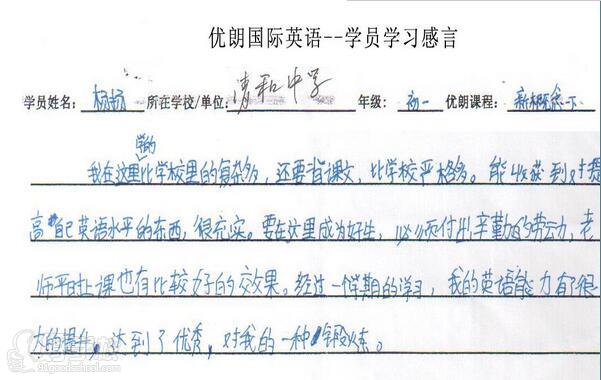 优朗国际英语--学员学习感言
学员姓名: 杨扬 所在学校/单位: 清和中学 年级: 初一 优朗课程: 新概念一下
学的
我在这里比学校里的复杂多，还要背课文，比学校严格多。能收获到对提
高自己英语水平的东西，很充实。要在这里成为好生，必须付出辛勤的劳动力，老
师平时上课也有比较好的效果。经过一个学期的学习，我的英语能力有了很
大的提升，达到了优秀，对我的一种锻炼。
91goodschool.com